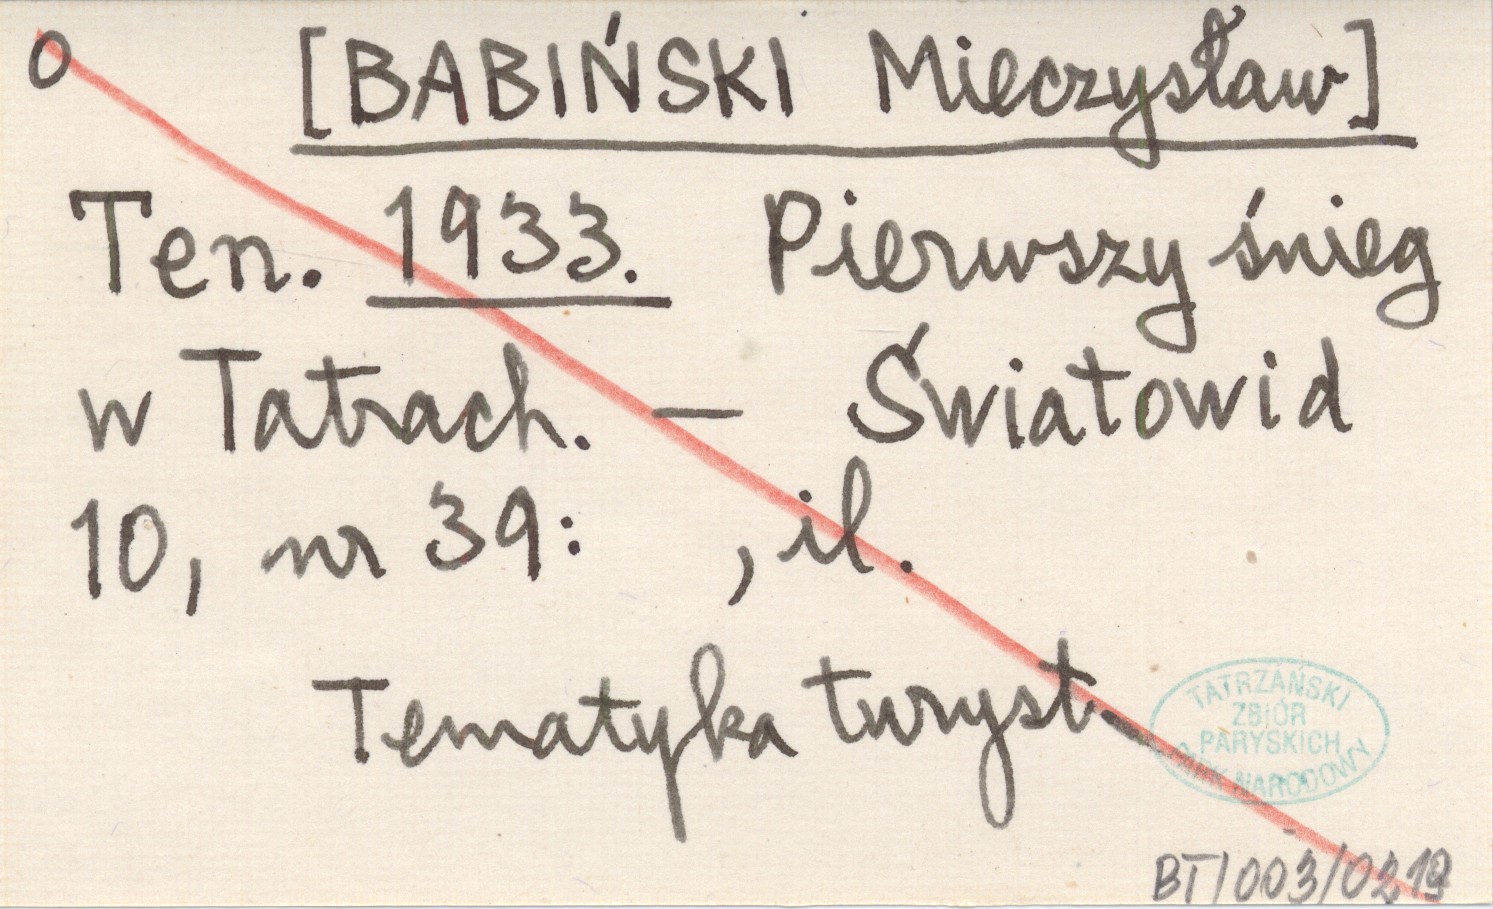 O [BABIŃSKI Mieczysław]
Ten. 1933. Pierwszy śnieg
w Tatrach. — Światowid
10, nr 39: , il.
Tematyka turyst.
TATRZAŃSKI
ZBIÓR
PARYSKICH
PARK NARODOWY
BT/003/0219